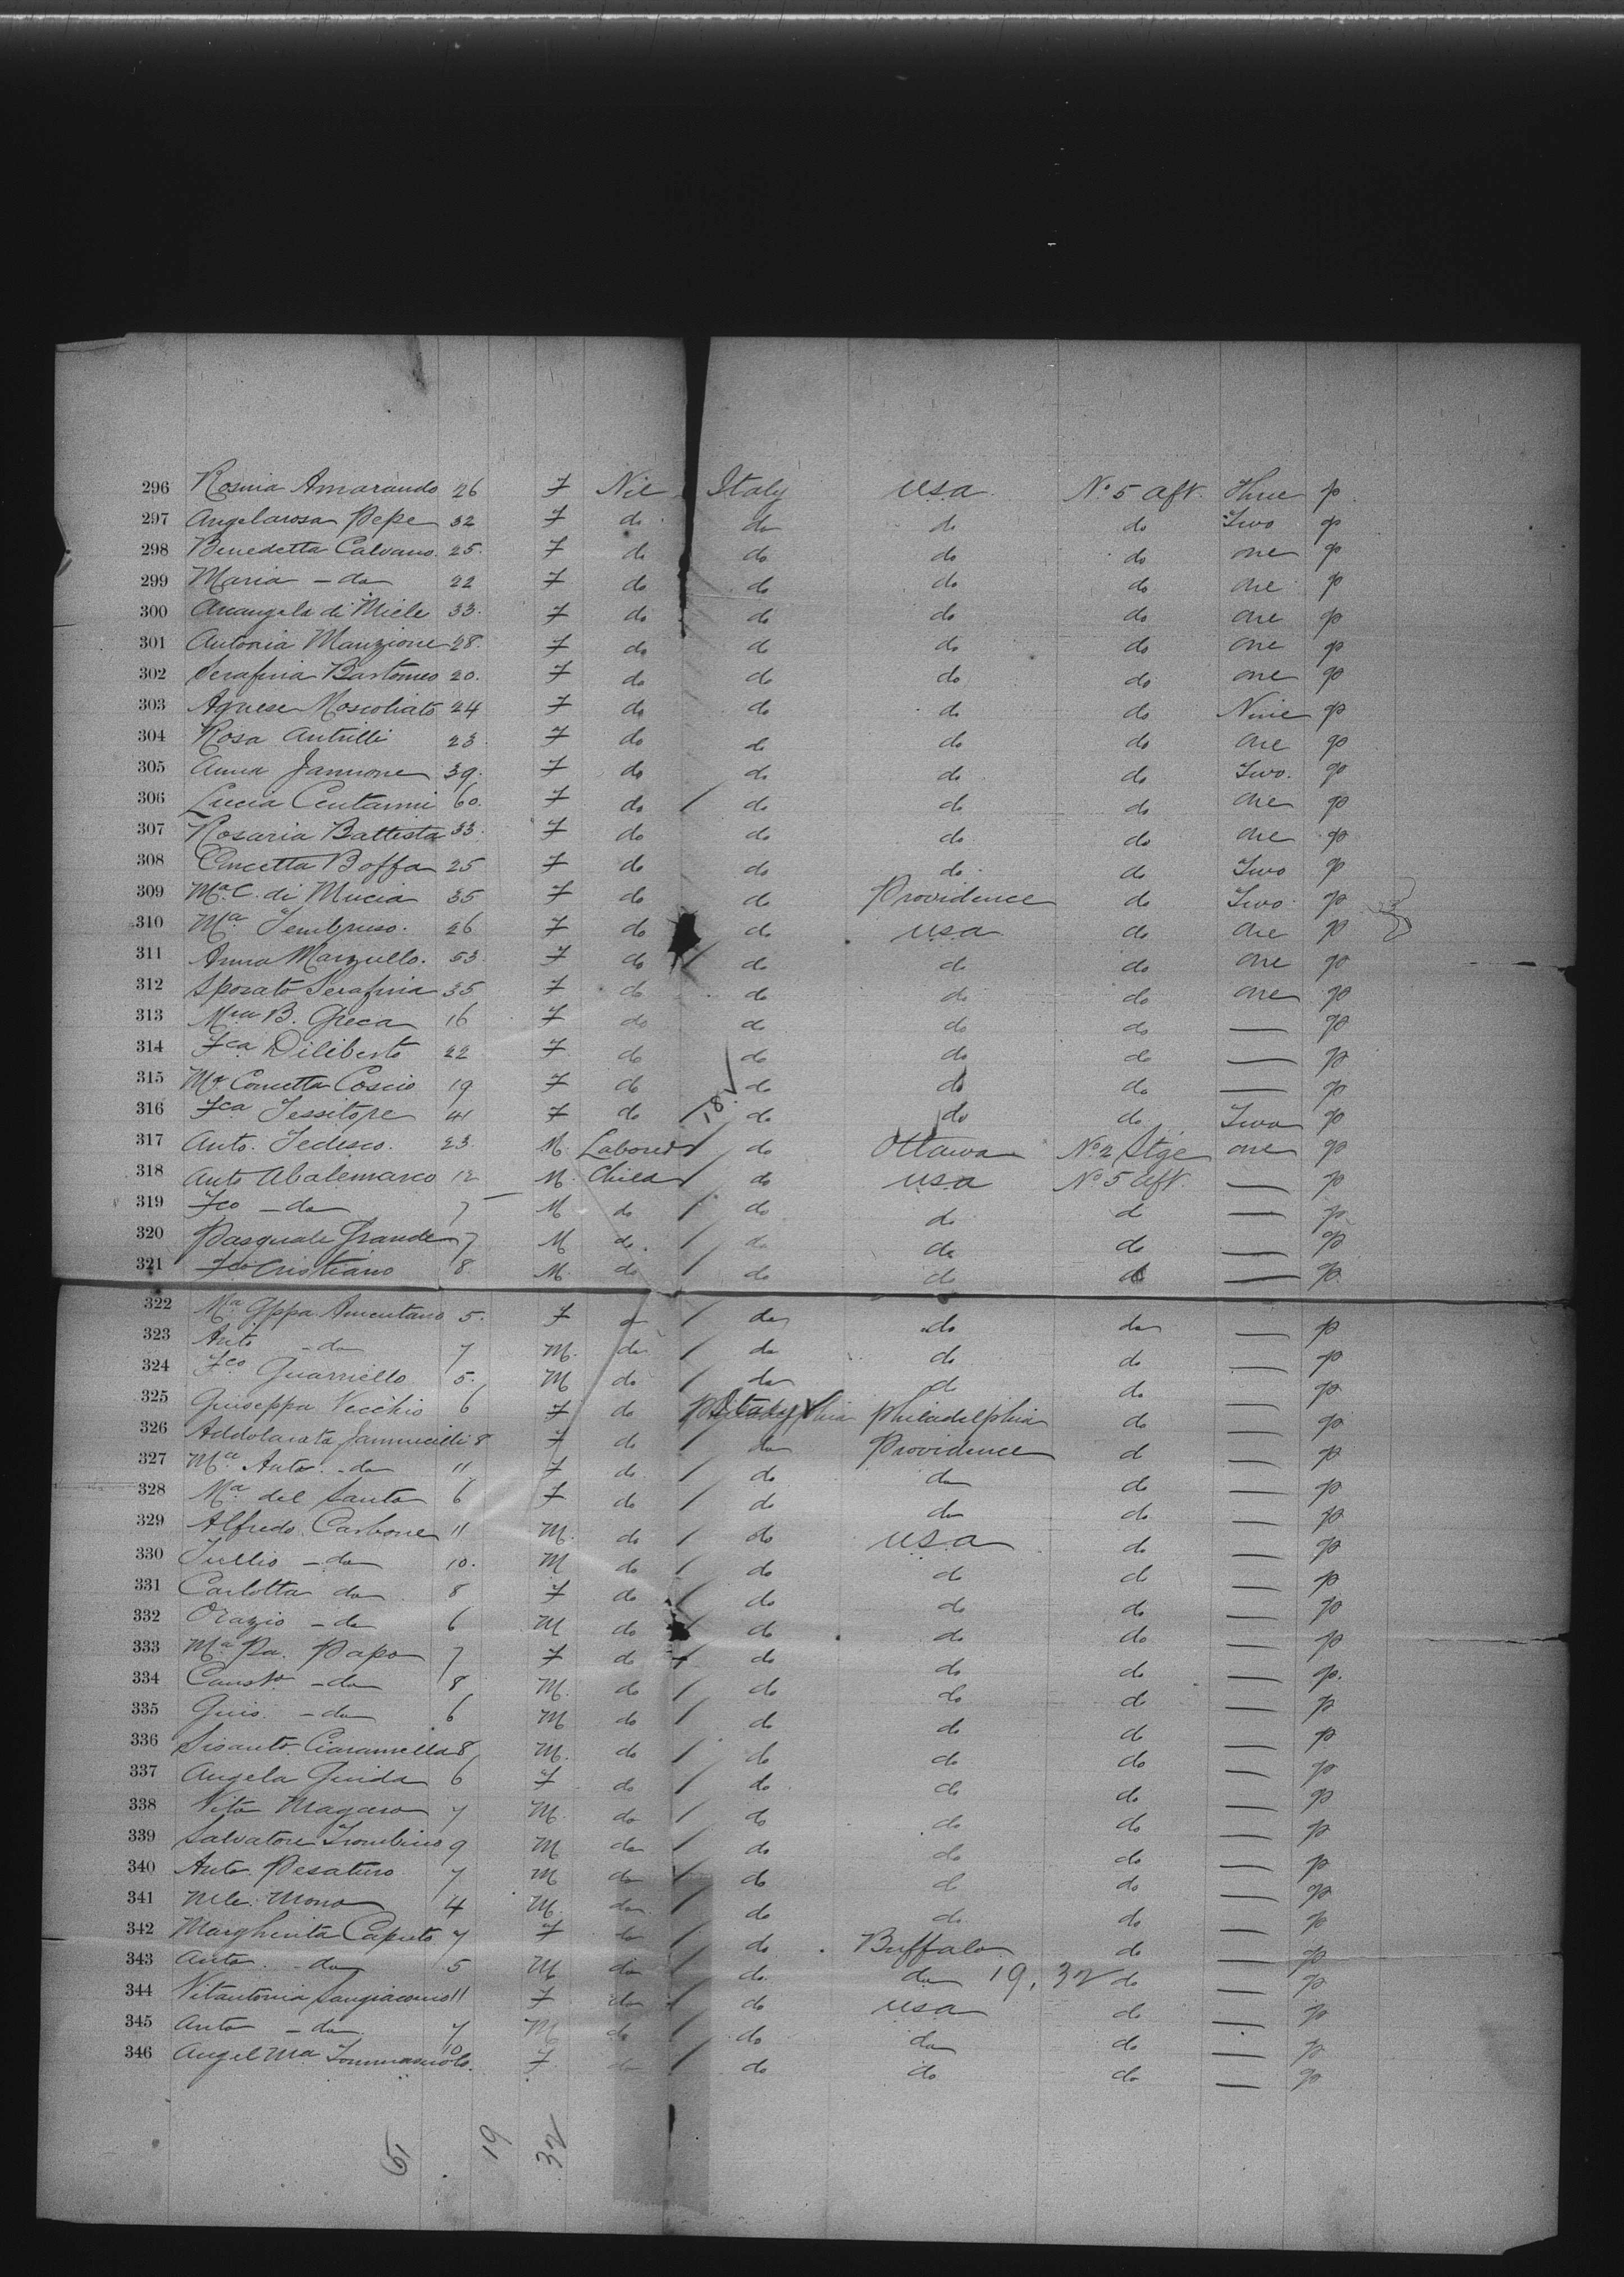 296 Rosina Amarando 26 F Nil Italy USA No 5 aft. Three p
297 Angelarosa Pepe 32 F do do do do Two p
298 Benedetta Calvano 25. F do do do do one p
299 Maria - do 22 F do do do do one p
300 Arcangela di Miele 33. F do do do do one p
301 Antonia Manzione 28. F do do do do one p
302 Serafina Bartomeo 20. F do do do do one p
303 Agnese Moscoliato 24 F do do do do Nine p
304 Rosa Antrilli 23 F do do do do one p
305 Anna Jannone 39. F do do do do Two. p
306 Lucia Centanni 60. F do / do do do one p
307 Rosaria Battista 33. F do do do do one p
308 Concetta Boffa 25 F do do do do Two p
309 Ma C. di Mucia 35 F do do Providence do Two p
310 Ma 26 F do do USA do one p
311 Anna Marzullo. 53. F do / do do do one p
312 Sposato Serafina 35 F do do do do one p
313 Mia B. Greca 16 F do do do do — p
314 Fca Diliberto 22 F do do do do — p
315 Ma Concetta Coscio 19 F do do do do — p
316 Fca Tessitore 41 F do 18 √ do do do Two p
317 Anto. Tedesco. 23. M. Laborer / do Ottawa No 2 Stge one p
318 Anto Abalemarco 12 M. Child / do USA No 5 aft. — p
319 Fco - do 7 M do / do do do — p
320 Pasquale Grande 7 M do / do do do — p
321 Fco Cristiano 8. M. do / do do do — p
322 Ma Gppa Amentano 5. F do / do do do — p
323 Anto - do 7 M. do / do do do — p
324 Fco Guarriello 5. M do / do do do — p
325 Giuseppa Vecchio 6 F do Italy Philadelphia do — p
326 Addolarata Jannucilli 8 F do / do Providence do — p
327 Ma Anta. - do 11 F do / do do do — p
328 Ma del Santo 6 F do / do do do — p
329 Alfredo Carbone 11 M. do / do USA do — p
330 Tullio - do 10. M do / do do do — p
331 Carlotta do 8 F do / do do do — p
332 Orazio - do 6 M do / do do do — p
333 Ma Pa. Papo 7 F do / do do do — p.
334 - do 8 M. do / do do do — p
335 Gius. - do 6 M do / do do do — p
336 Sisanto Ciaramella 8 M. do / do do do — p
337 Angela Guida 6 F do / do do do — p
338 Vito Magaro 7 M. do / do do do — p
339 Salvatore Trombino 9 M do / do do do — p
340 Anto Pesaturo 7 M do / do do do — p
341 Mle. Mono 4 M. do / do do do — p
342 Margherita Caputo 7 F do / do Buffalo do — p
343 Anto. - do 5 M do / do do 19. 32 do — p
344 Vitantonia Sangiacomo 11 F do / do USA do — p
345 Anto - do 7 M do / do do do — p
346 Angel Ma 10 F do / do do do — p
51 19 32